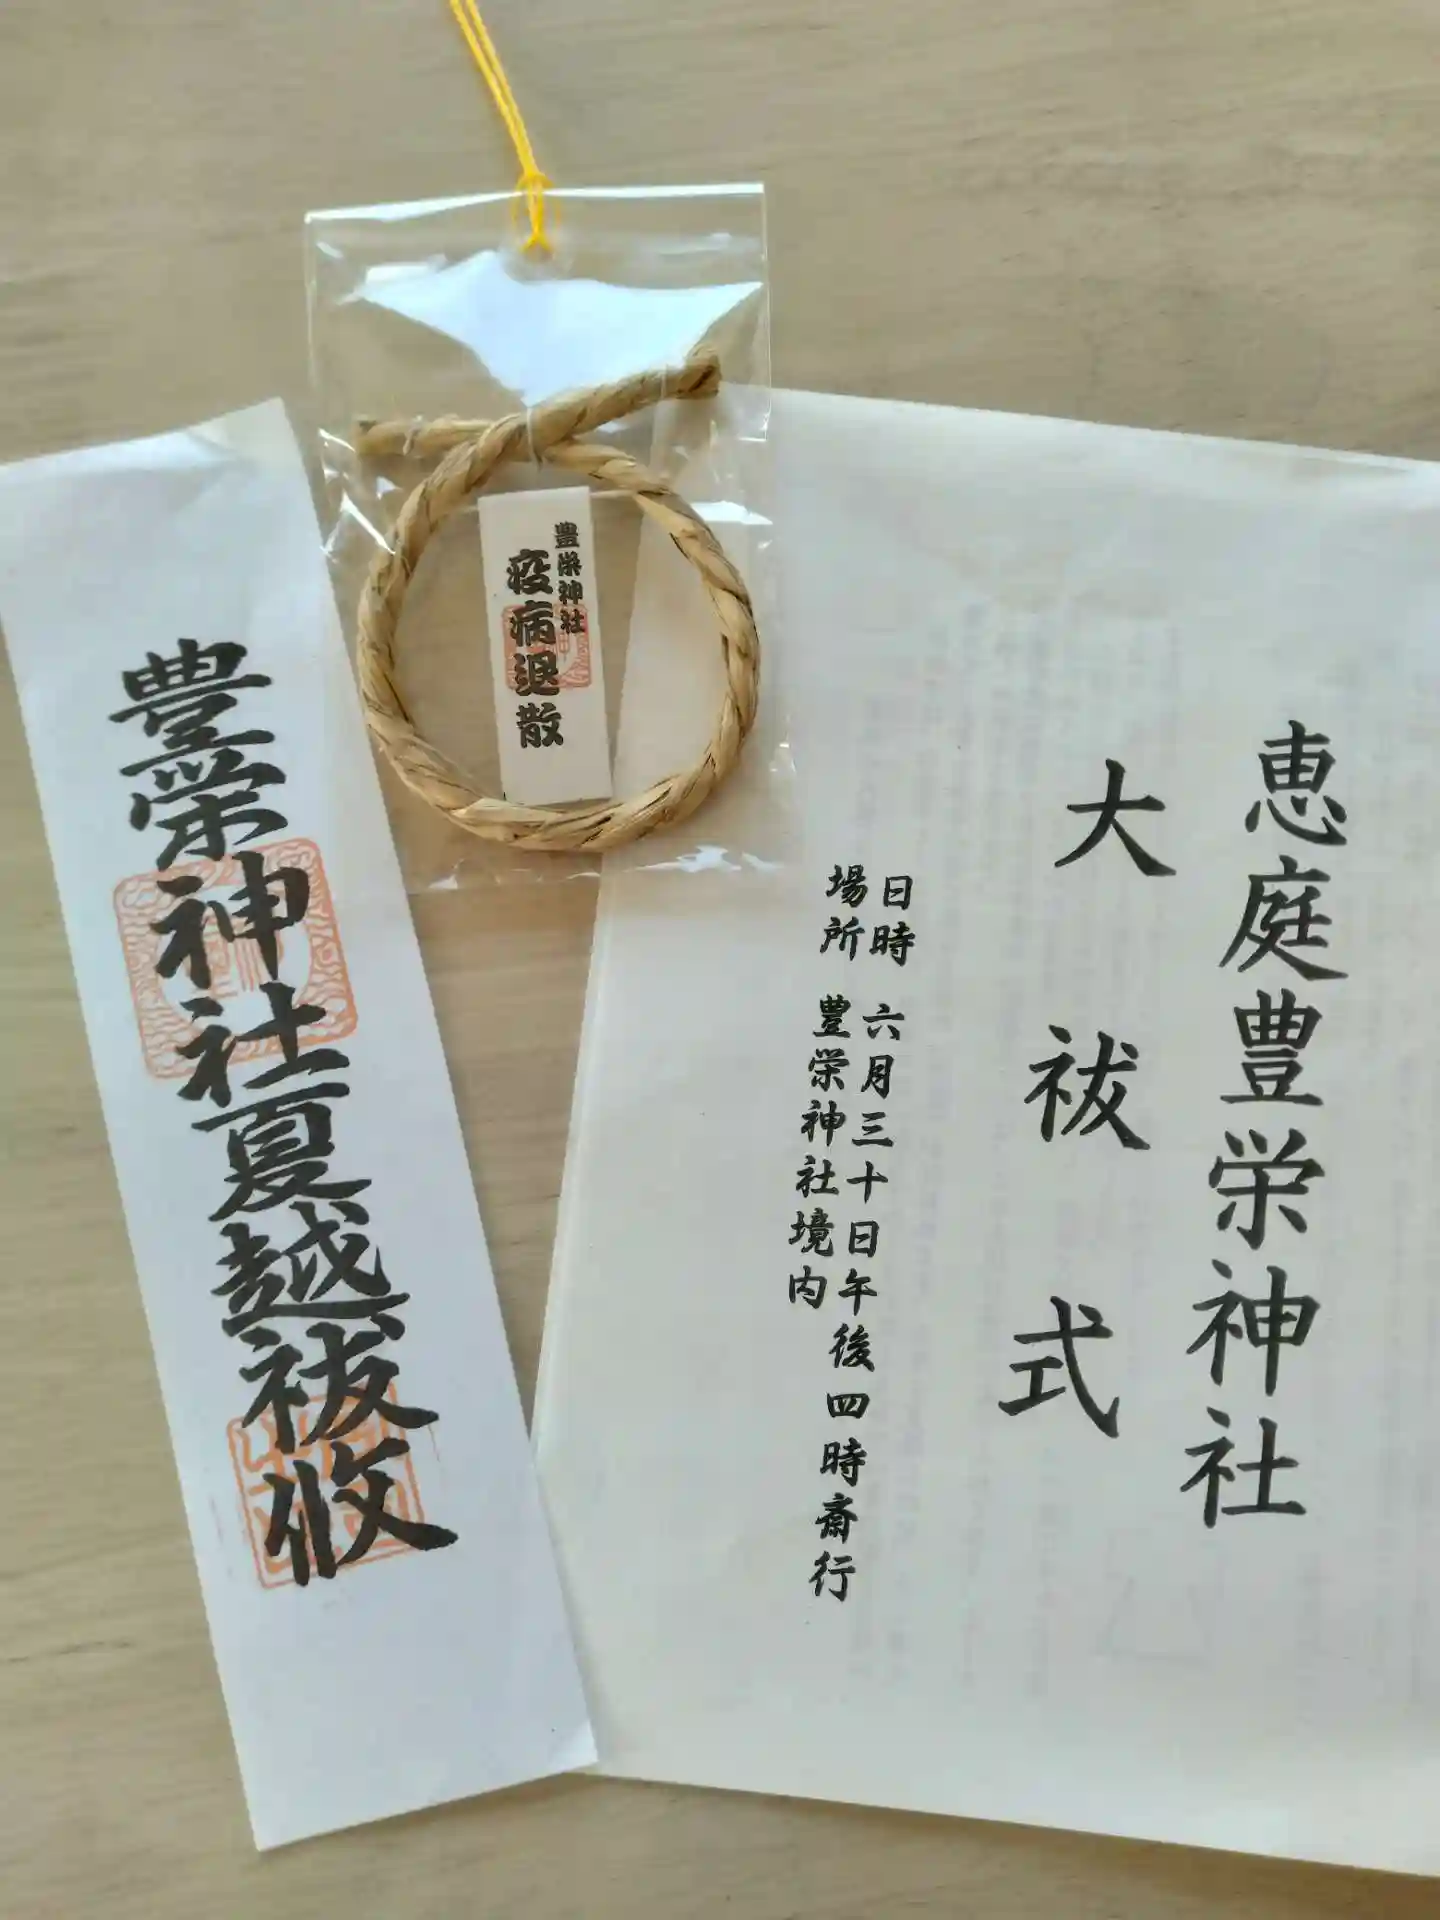 恵庭豊栄神社
大祓式
日時 六月三十日午後四時斎行
場所 豊栄神社境内
豊栄神社
疫病退散
豊栄神社夏越祓攸